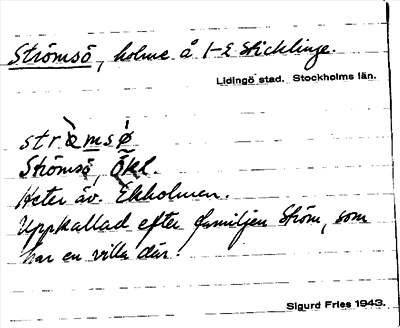 Strömsö, holme å 1-2 Sticklinge.
Lidingö stad. Stockholms län.
strø̀msǿ
Strömsö, Ökl.
Heter äv. Ekholmen.
Uppkallad efter familjen Ström, som
har en villa där.
Sigurd Fries 1943.